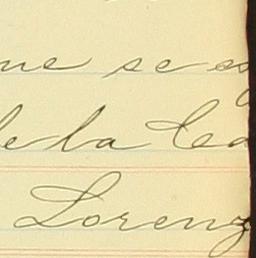 ne se es
de la Ca
Lorenz